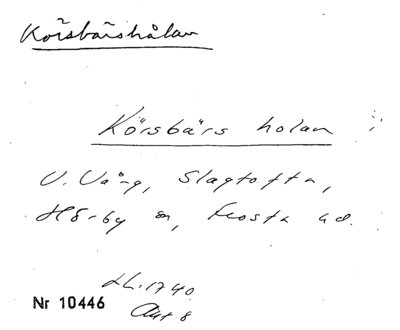 Körsbärshålan
Körsbärs holan
V. Vång, Slagtofta,
Hörby sn, Frosta hd.
LL. 1740
Nr 10446
Akt 8